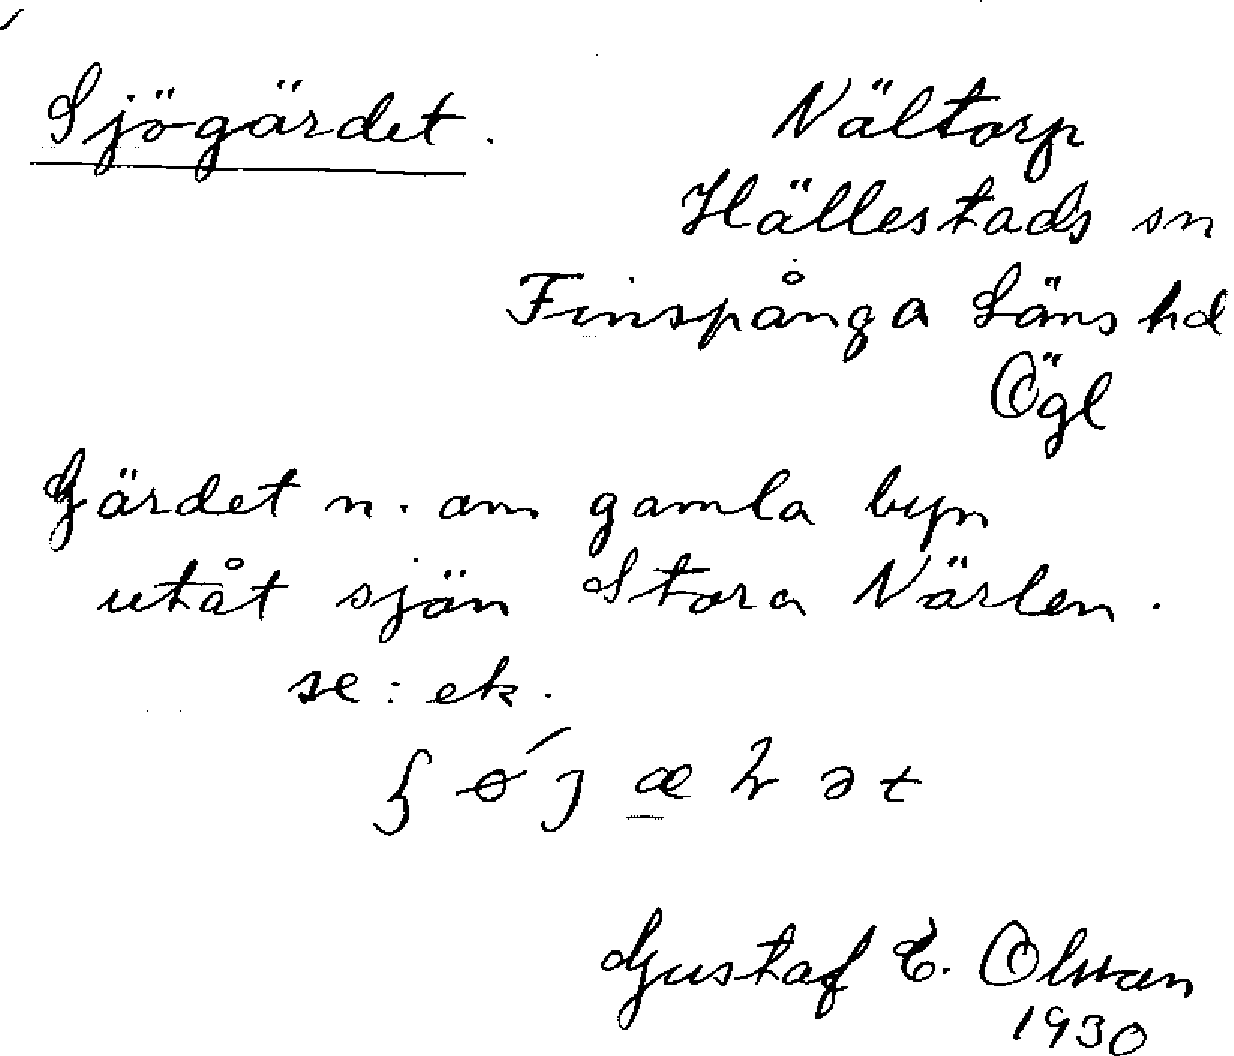 Sjögärdet.
Nältorp
Hällestads sn
Finspånga Läns hd
Ögl
Gärdet n. om gamla byn
utåt sjön Stora Närlen.
se: ek.
Gustaf E. Olsson
1930